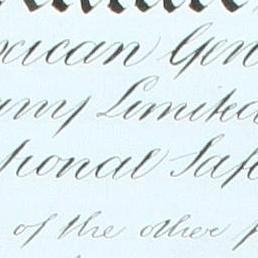 xican Gen
any Limited
tional Safe
of the other p